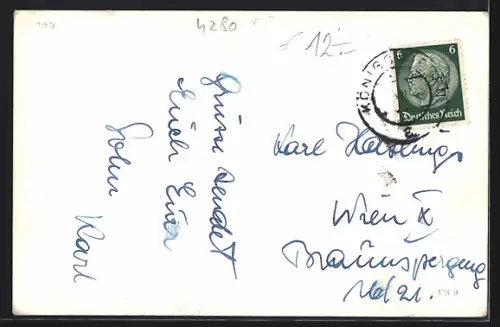 4280
12.-
KÖNIGS
6 6
Deutsches Reich
Grüsse sendet
Euch Euer
Sohn Karl
Karl
Wien X
Braunspergeng
21.